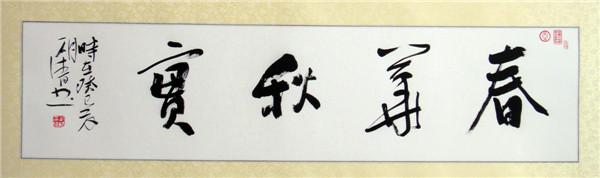 春華秋實
時在癸巳